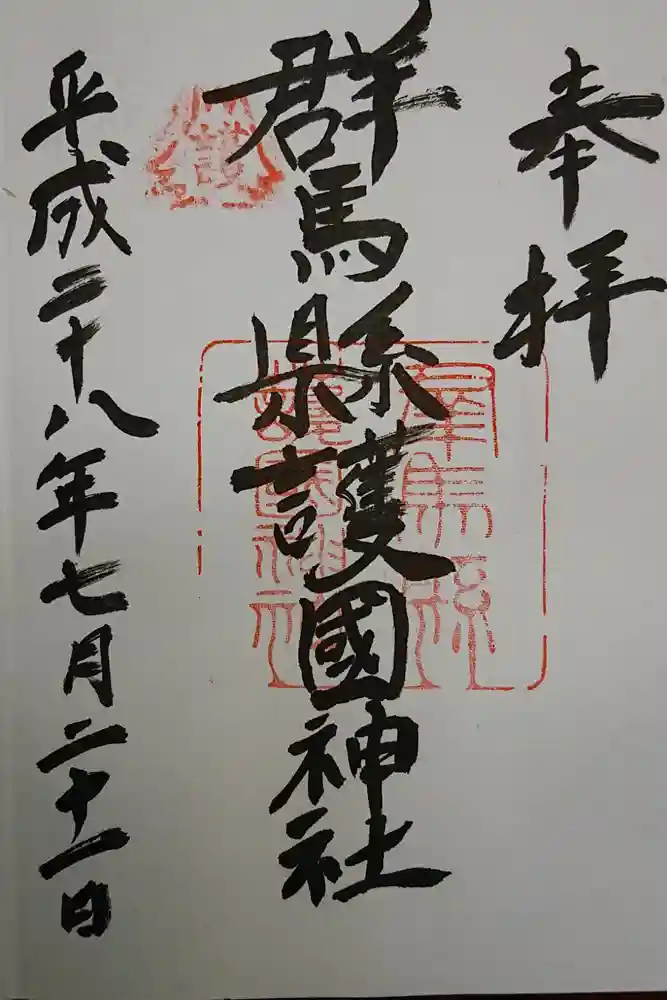 奉拝
群馬縣護國神社
平成二十八年七月二十一日
群馬縣
護國神社
護